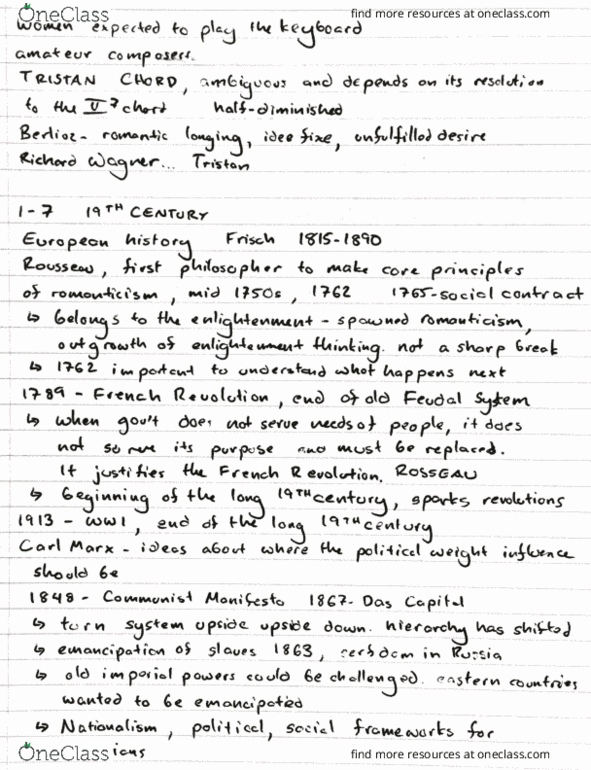 OneClass find more resources at oneclass.com
women expected to play the keyboard
amateur composers.
TRISTAN CHORD, ambiguous and depends on its resolution
to the V7 chord half-diminished
Berlioz - romantic longing, idee fixe, unfulfilled desire
Richard Wagner... Tristan
1-7 19TH CENTURY
European history Frisch 1815-1890
Rousseau, first philosopher to make core principles
of romanticism, mid 1750s, 1762 1765-social contract
↳ belongs to the enlightenment - spawned romanticism,
outgrowth of enlightenment thinking. not a sharp break
↳ 1762 important to understand what happens next
1789 - French Revolution, end of old Feudal System
↳ when gov't does not serve needs of people, it does
not serve its purpose and must be replaced.
It justifies the French Revolution. ROSSEAU
↳ beginning of the long 19TH century, sparks revolutions
1913 - WW1, end of the long 19TH century
Carl Marx - ideas about where the political weight influence
should be
1848 - Communist Manifesto 1867- Das Capital
↳ turn system upside upside down. hierarchy has shifted
↳ emancipation of slaves 1863, serfdom in Russia
↳ old imperial powers could be challenged. eastern countries
wanted to be emancipatied
↳ Nationalism, political, social frameworks for
OneClass find more resources at oneclass.com